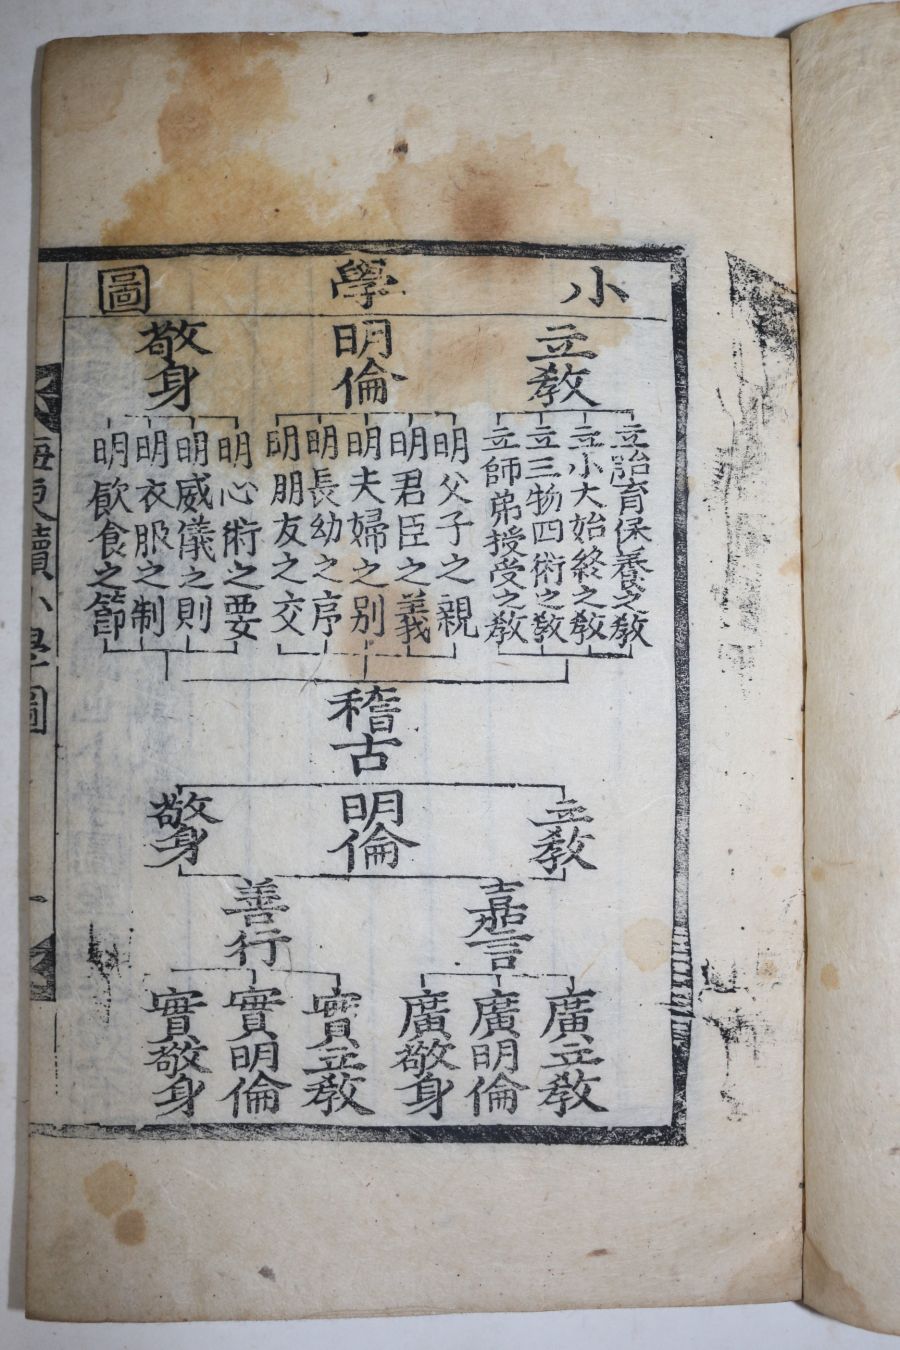 小學圖
立教
明倫
敬身
立詒育保養之教
立小大始終之教
立三物四術之教
立師弟授受之教
明父子之親
明君臣之義
明夫婦之別
明長幼之序
明朋友之交
明心術之要
明威儀之則
明衣服之制
明飲食之節
稽古
立教
明倫
敬身
嘉言
善行
廣立教
廣明倫
廣敬身
實立教
實明倫
實敬身
海東續小學圖
一